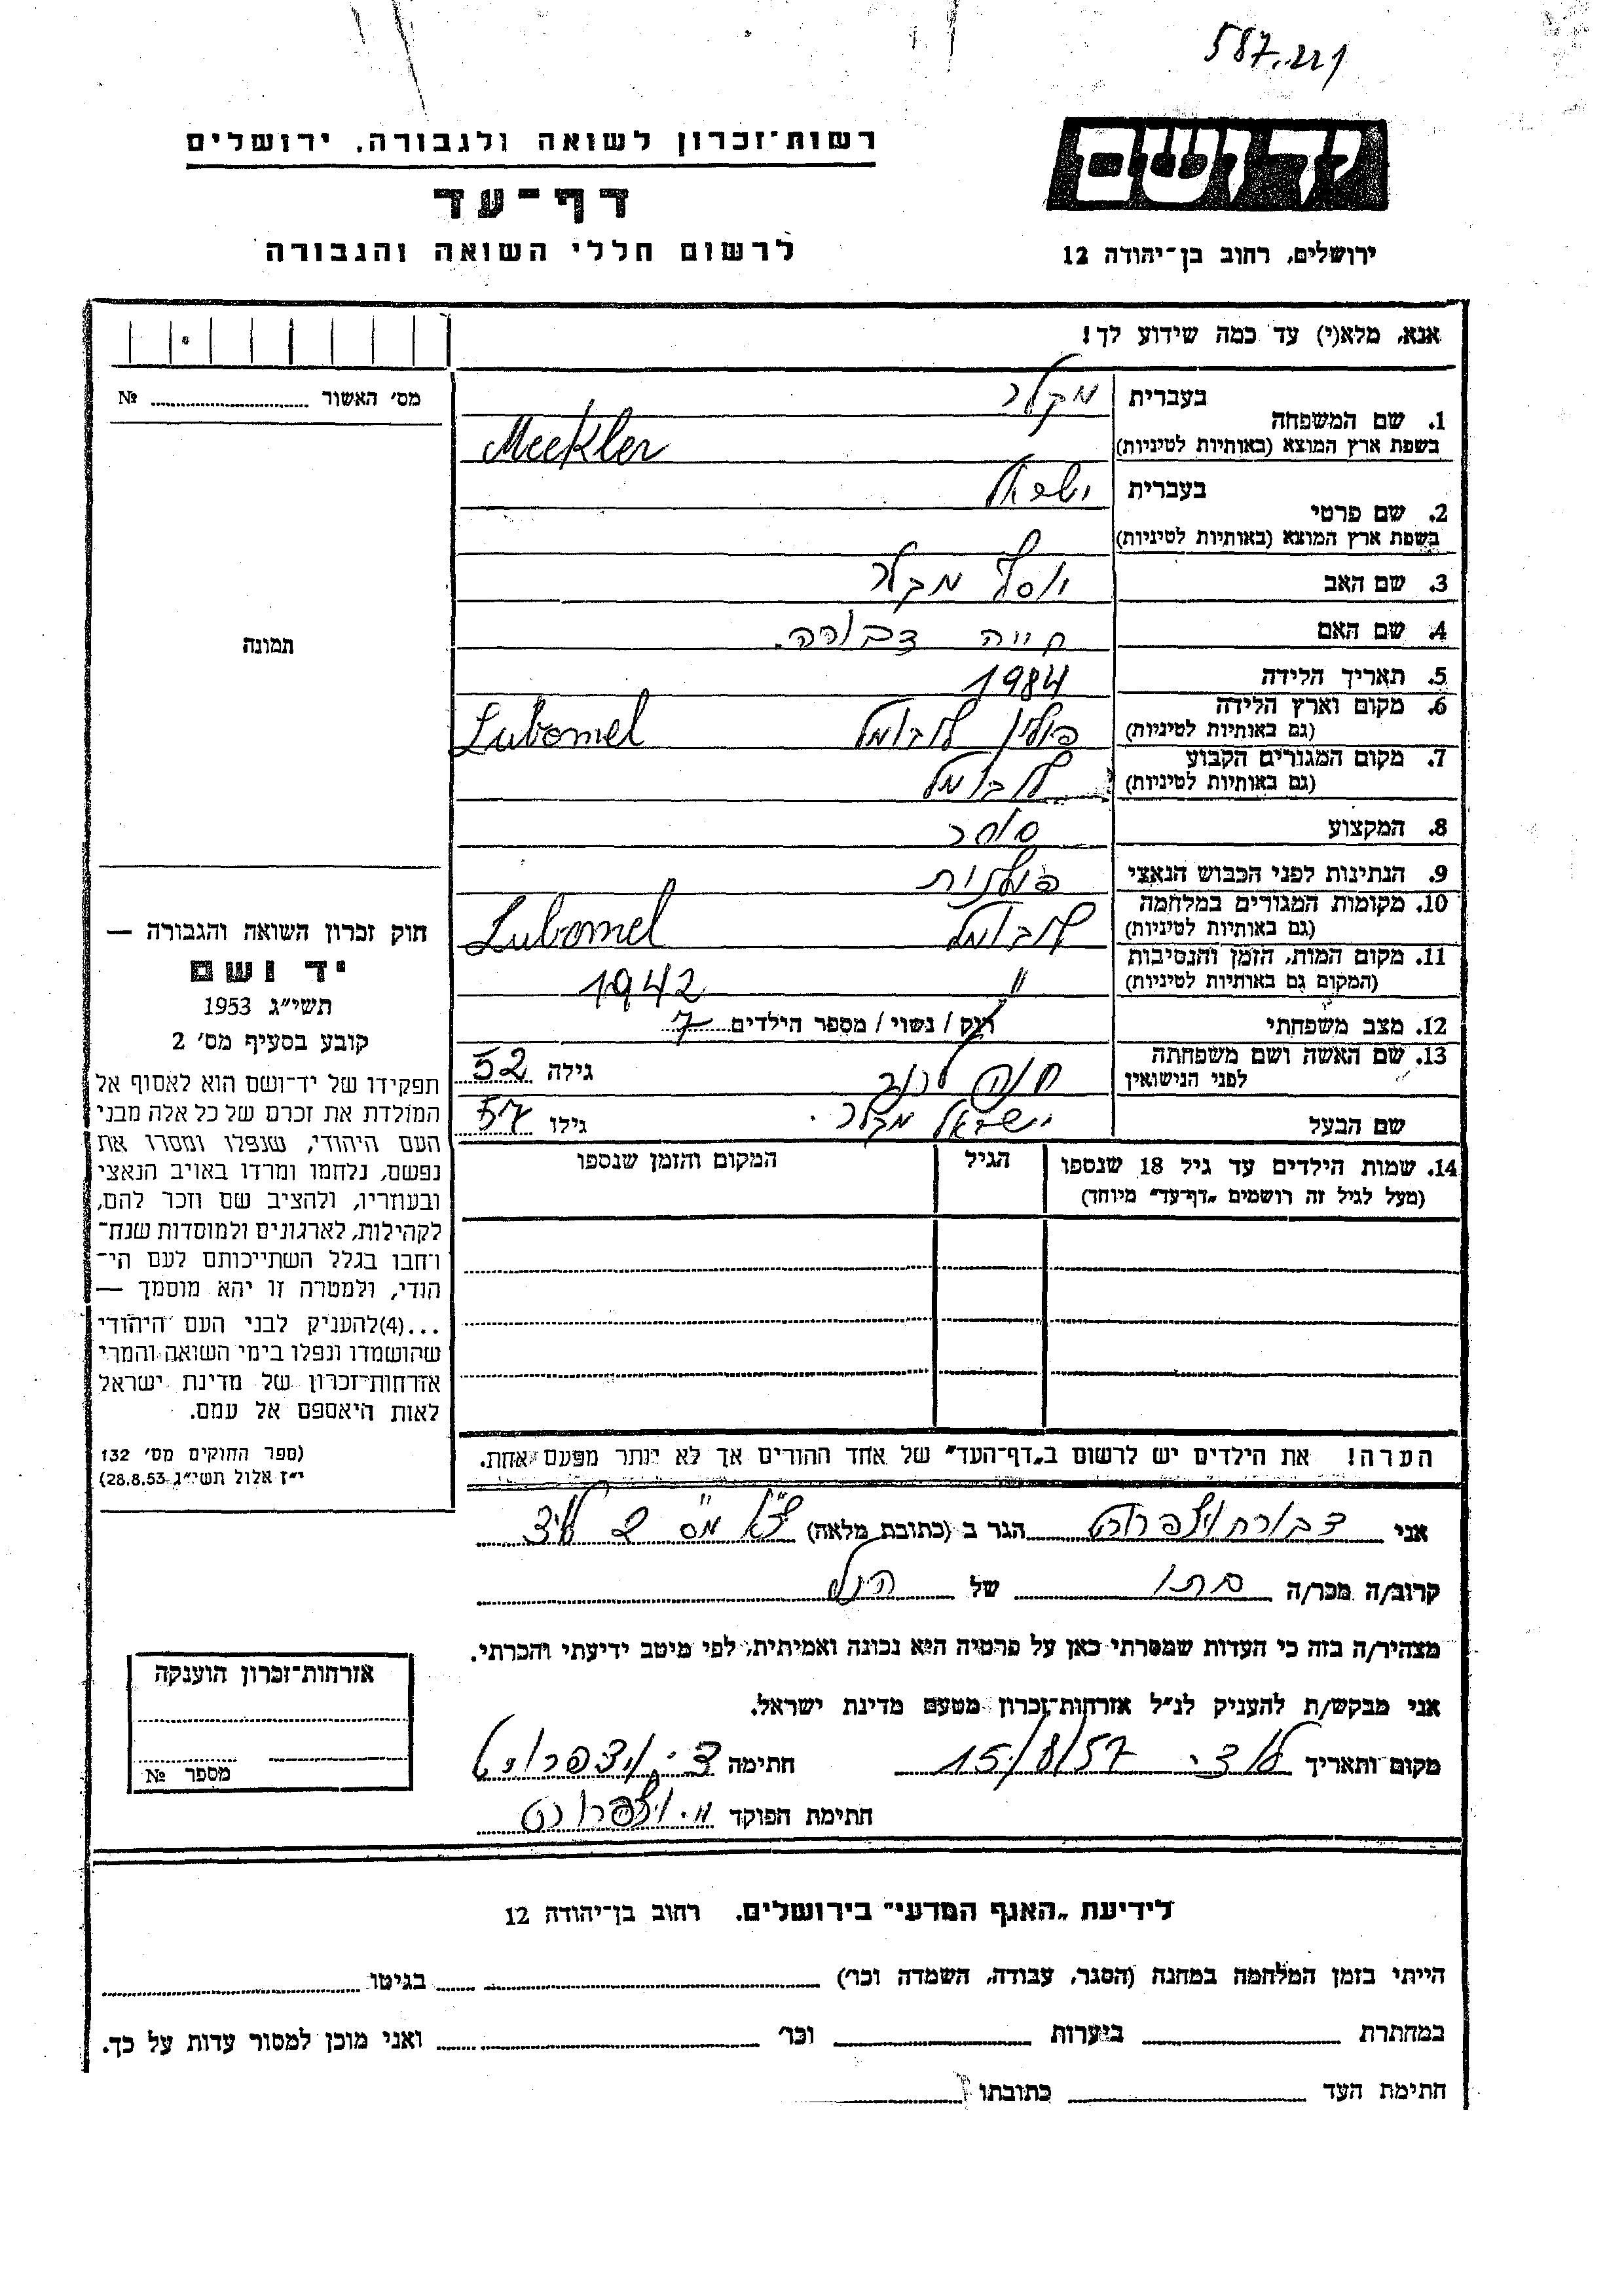 587..221
ידושם
ירושלים, רחוב בן־יהודה 12
רשות־זכרון לשואה ולגבורה, ירושלים
דף־עד
לרשום חללי השואה והגבורה
אנא, מלא(י) עד כמה שידוע לך!
מס׳ האשור № ...
תמונה
1. שם המשפחה בעברית מקלר
בשפת ארץ המוצא (באותיות לטיניות) Meekler
2. שם פרטי בעברית ישראל
בשפת ארץ המוצא (באותיות לטיניות)
3. שם האב יוסף מקלר
4. שם האם חייה דבורה.
5. תאריך הלידה 1984
6. מקום וארץ הלידה (גם באותיות לטיניות) פולין לובומל Lubomel
7. מקום המגורים הקבוע (גם באותיות לטיניות) לובומל
8. המקצוע סוחר
9. הנתינות לפני הכבוש הנאצי פולנית
10. מקומות המגורים במלחמה (גם באותיות לטיניות) לובומל Lubomel
11. מקום המות, הזמן והנסיבות (המקום גם באותיות לטיניות) " 1942
12. מצב משפחתי רוק / נשוי / מספר הילדים 7
13. שם האשה ושם משפחתה לפני הנישואין חנה גילה 52
שם הבעל ישראל מקלר. גילו 57
14. שמות הילדים עד גיל 18 שנספו (מעל לגיל זה רושמים „דף־עד״ מיוחד) הגיל המקום והזמן שנספו
חוק זכרון השואה והגבורה —
יד ושם
תשי״ג 1953
קובע בסעיף מס׳ 2
תפקידו של יד־ושם הוא לאסוף אל
המולדת את זכרם של כל אלה מבני
העם היהודי, שנפלו ומסרו את
נפשם, נלחמו ומרדו באויב הנאצי
ובעוזריו, ולהציב שם וזכר להם,
לקהילות, לארגונים ולמוסדות שנח־
רחבו בגלל השתייכותם לעם הי־
הודי, ולמטרה זו יהא מוסמך —
...(4)להעניק לבני העם היהודי
שהושמדו ונפלו בימי השואה והמרי
אזרחות־זכרון של מדינת ישראל
לאות היאספם אל עמם.
(ספר החוקים מס׳ 132
י״ז אלול תשי״ג 28.8.53)
הערה! את הילדים יש לרשום ב„דף־העד״ של אחד ההורים אך לא יותר מפעם אחת.
אני דבורה הגר ב (כתובת מלאה)
קרוב/ה מכר/ה בתו של הנ״ל
מצהיר/ה בזה כי העדות שמסרתי כאן על פרטיה היא נכונה ואמיתית, לפי מיטב ידיעתי והכרתי.
אני מבקש/ת להעניק לנ״ל אזרחות־זכרון מטעם מדינת ישראל.
מקום ותאריך 15/8/57 חתימה
חתימת הפוקד
אזרחות־זכרון הוענקה
מספר №
לידיעת „האגף המדעי״ בירושלים. רחוב בן־יהודה 12
הייתי בזמן המלחמה במחנה (הסגר, עבודה, השמדה וכו׳) בגיטו
במחתרת ביערות וכו׳ ואני מוכן למסור עדות על כך.
חתימת העד כתובתו